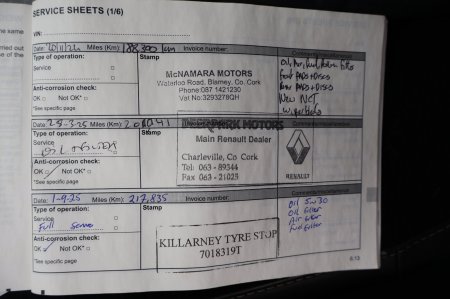 SERVICE SHEETS (1/6)
VIN:
Date: Miles (Km): 188,300 km Invoice number:
Type of operation: Stamp Comments/miscellaneous
Service
Anti-corrosion check:
OK Not OK*
*See specific page
McNAMARA MOTORS
Waterloo Road, Blarney, Co. Cork
Phone:087 1421230
Vat No:3293278QH
Front PADS+DISCS
Rear PADS+DISCS
New NCT
Date: 25-3-25 Miles (Km):
Type of operation:
Service
Anti-corrosion check:
OK Not OK*
*See specific page
MOTORS
Main Renault Dealer
Charleville, Co Cork
Tel: 063 - 89344
Fax 063 - 21025
RENAULT
Date: 1-9-25 Miles (Km): 217,835 Invoice number:
Type of operation: Stamp
Service
Full Service
Anti-corrosion check:
OK Not OK*
*See specific page
KILLARNEY TYRE STOP
7018319T
Oil 5w30
Oil filter
Air filter
Fuel filter
6.13